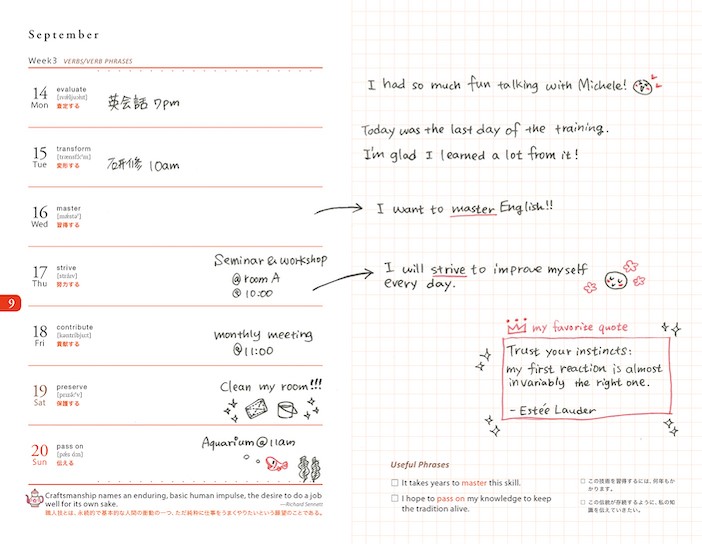 September
Week3 VERBS/VERB PHRASES
14 evaluate
Mon
査定する
英会話 7pm
15 transform
Tue
変形する
研修 10am
16 master
Wed
習得する
17 strive
Thu
努力する
Seminar & workshop
@ room A
@ 10:00
9
18 contribute
Fri
貢献する
monthly meeting
@ 11:00
19 preserve
Sat
保護する
Clean my room!!!
20 pass on
Sun
伝える
Aquarium @ 11am
Craftsmanship names an enduring, basic human impulse, the desire to do a job
well for its own sake.
—Richard Sennett
職人技とは、永続的で基本的な人間の衝動の一つ、ただ純粋に仕事をうまくやりたいという願望のことである。
I had so much fun talking with Michele!
Today was the last day of the training.
I'm glad I learned a lot from it!
I want to master English!!
I will strive to improve myself
every day.
my favorite quote
Trust your instincts:
my first reaction is almost
invariably the right one.
- Estée Lauder
Useful Phrases
It takes years to master this skill.
I hope to pass on my knowledge to keep
the tradition alive.
この技術を習得するには、何年もか
かります。
この伝統が存続するように、私の知
識を伝えていきたい。